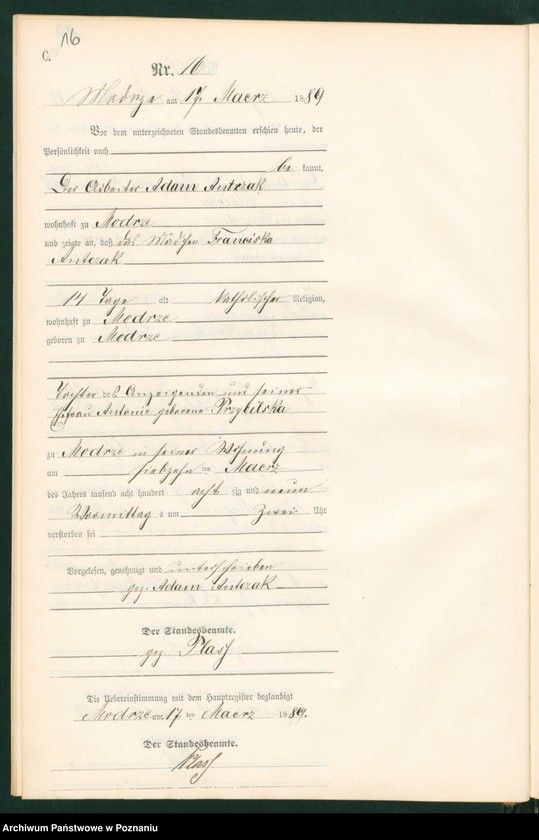 16
C.
Nr. 16
Modrze am 17. Maerz 1889
Vor dem unterzeichneten Standesbeamten erschien heute, der
Persönlichkeit nach
be kannt,
Der Arbeiter Adam Antczak
wohnhaft zu Modrze
und zeigte an, daß das Mädchen Franciska
Antczak
14 Tage alt katholischer Religion,
wohnhaft zu Modrze
geboren zu Modrze
Tochter des Anzeigenden und seiner
Ehefrau Antonie geborene Przybilska
zu Modrze in seiner Wohnung
am siebzehn ten Maerz
des Jahres tausend acht hundert acht zig und neun
Vormittag s um Zwei Uhr
verstorben sei
Vorgelesen, genehmigt und unterschrieben
gez. Adam Antczak
Der Standesbeamte.
gez.
Die Uebereinstimmung mit dem Hauptregister beglaubigt
Modrze am 17 ten Maerz 1889.
Der Standesbeamte.
Archiwum Państwowe w Poznaniu